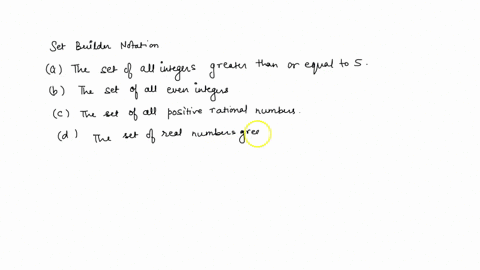 Set Builder Notation
(a) The set of all integers greater than or equal to 5.
(b) The set of all even integers
(c) The set of all positive rational numbers.
(d) The set of real numbers gree